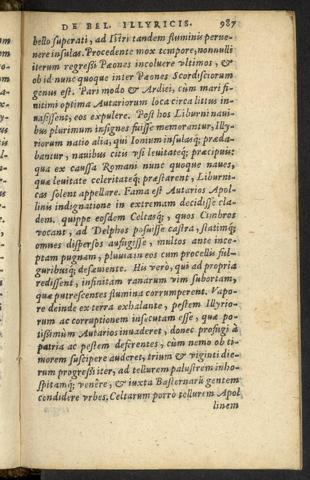 DE BEL. ILLYRICIS. 987
bello superati, ad Istri tandem fluminis perue-
nere insulas. Procedente mox tempore, nonnulli
iterum regressi Pæones incoluere vltimos, &
ob id nunc quoque inter Pæones Scordiscorum
genus est. Pari modo & Ardiei, cùm mari fi-
nitimi optima Autariorum loca circa littus in-
uasissent, eos expulere. Post hos Liburni naui-
bus plurimum insignes fuisse memorantur, Illy-
riorum natio alia, qui Ionium insulasq́; præda-
bantur, nauibus citis vsi leuitateq́; præcipuis:
qua ex caussa Romani nunc quoque naues,
quæ leuitate celeritateq́; præstarent, Liburni-
cas solent appellare. Fama est Autarios Apol-
linis indignatione in extremam decidisse cla-
dem. quippe eosdem Celtasq́;, quos Cimbros
vocant, ad Delphos posuisse castra, statimq́;
omnes dispersos aufugisse, multos ante ince-
ptam pugnam, pluuia in eos cum procellis ful-
guribusq́; desæuiente. His verò, qui ad propria
redissent, infinitam ranarum vim subortam,
quæ putrescentes flumina corrumperent. Vapo-
re deinde ex terra exhalante, pestem Illyrio-
rum ac corruptionem insecutam esse, quæ po-
tissimùm Autarios inuaderet, donec profugi à
patria ac pestem deferentes, cùm nemo ob ti-
morem suscipere auderet, trium & viginti die-
rum progressi iter, ad tellurem palustrem inho-
spitamq́; venêre, & iuxta Basternarū gentem
condidere vrbes. Celtarum porrò tellurem Apol
linem